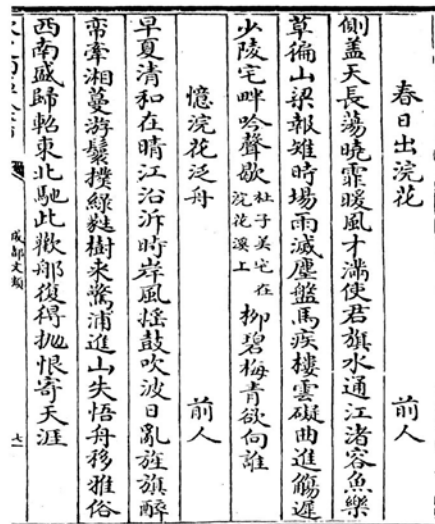 春日出浣花　前人
側蓋天長蕩曉霏暖風才滿使君旗水通江渚容魚樂
草徧山梁報雉時場雨滅塵盤馬疾樓雲礙曲進觴遲
少陵宅畔吟聲歇杜子美宅在浣花溪上柳碧梅青欲向誰
憶浣花泛舟　前人
早夏清和在晴江沿泝時岸風搖鼓吹波日亂旌旗醉
帟牽湘蔓游鬟撲綠㲯樹來驚浦進山失悟舟移雅俗
西南盛歸軺東北馳此歡那復得抛恨寄天涯
成都文類